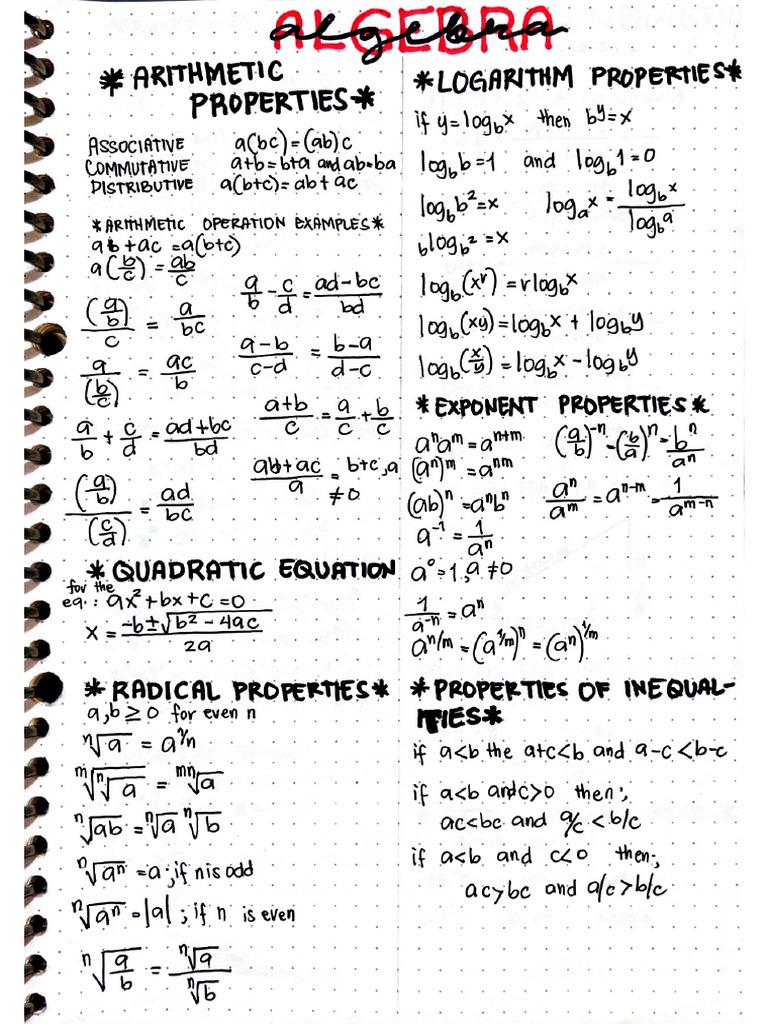 ALGEBRA
algebra
*ARITHMETIC
PROPERTIES*
ASSOCIATIVE a(bc)=(ab)c
COMMUTATIVE a+b=b+a and ab=ba
DISTRIBUTIVE a(b+c)=ab+ac
*ARITHMETIC OPERATION EXAMPLES*
ab+ac=a(b+c)
a(b/c)=ab/c
(a/b)/c = a/bc
a/(b/c) = ac/b
a/b + c/d = (ad+bc)/bd
(a/b)/(c/d) = ad/bc
a/b - c/d = (ad-bc)/bd
(a-b)/(c-d) = (b-a)/(d-c)
(a+b)/c = a/c + b/c
(ab+ac)/a = b+c, a
≠0
*QUADRATIC EQUATION
for the
eq.: ax²+bx+c=0
x = (-b±√(b²-4ac))/2a
*RADICAL PROPERTIES*
a,b≥0 for even n
ⁿ√a = a^1/n
ᵐ√(ⁿ√a) = ᵐⁿ√a
ⁿ√ab = ⁿ√a ⁿ√b
ⁿ√aⁿ = a; if n is odd
ⁿ√aⁿ = |a| ; if n is even
ⁿ√(a/b) = ⁿ√a/ⁿ√b
*LOGARITHM PROPERTIES*
if y=log_b x then b^y=x
log_b b=1 and log_b 1=0
log_b b²=x log_a x = log_b x/log_b a
b log_b² = x
log_b(x^r)=r log_b x
log_b(xy)=log_b x + log_b y
log_b(x/y)=log_b x - log_b y
*EXPONENT PROPERTIES*
aⁿaᵐ=aⁿ⁺ᵐ (a/b)⁻ⁿ=(b/a)ⁿ=bⁿ/aⁿ
(aⁿ)ᵐ=aⁿᵐ
(ab)ⁿ=aⁿbⁿ aⁿ/aᵐ=aⁿ⁻ᵐ=1/aᵐ⁻ⁿ
a⁻¹=1/aⁿ
a⁰=1, a≠0
1/a⁻ⁿ=aⁿ
a^n/m=(a^1/m)ⁿ=(aⁿ)^1/m
*PROPERTIES OF INEQUAL-
ITIES*
if a<b the a+c<b and a-c<b-c
if a<b and c>0 then;
ac<bc and a/c<b/c
if a<b and c<0 then;
ac>bc and a/c>b/c